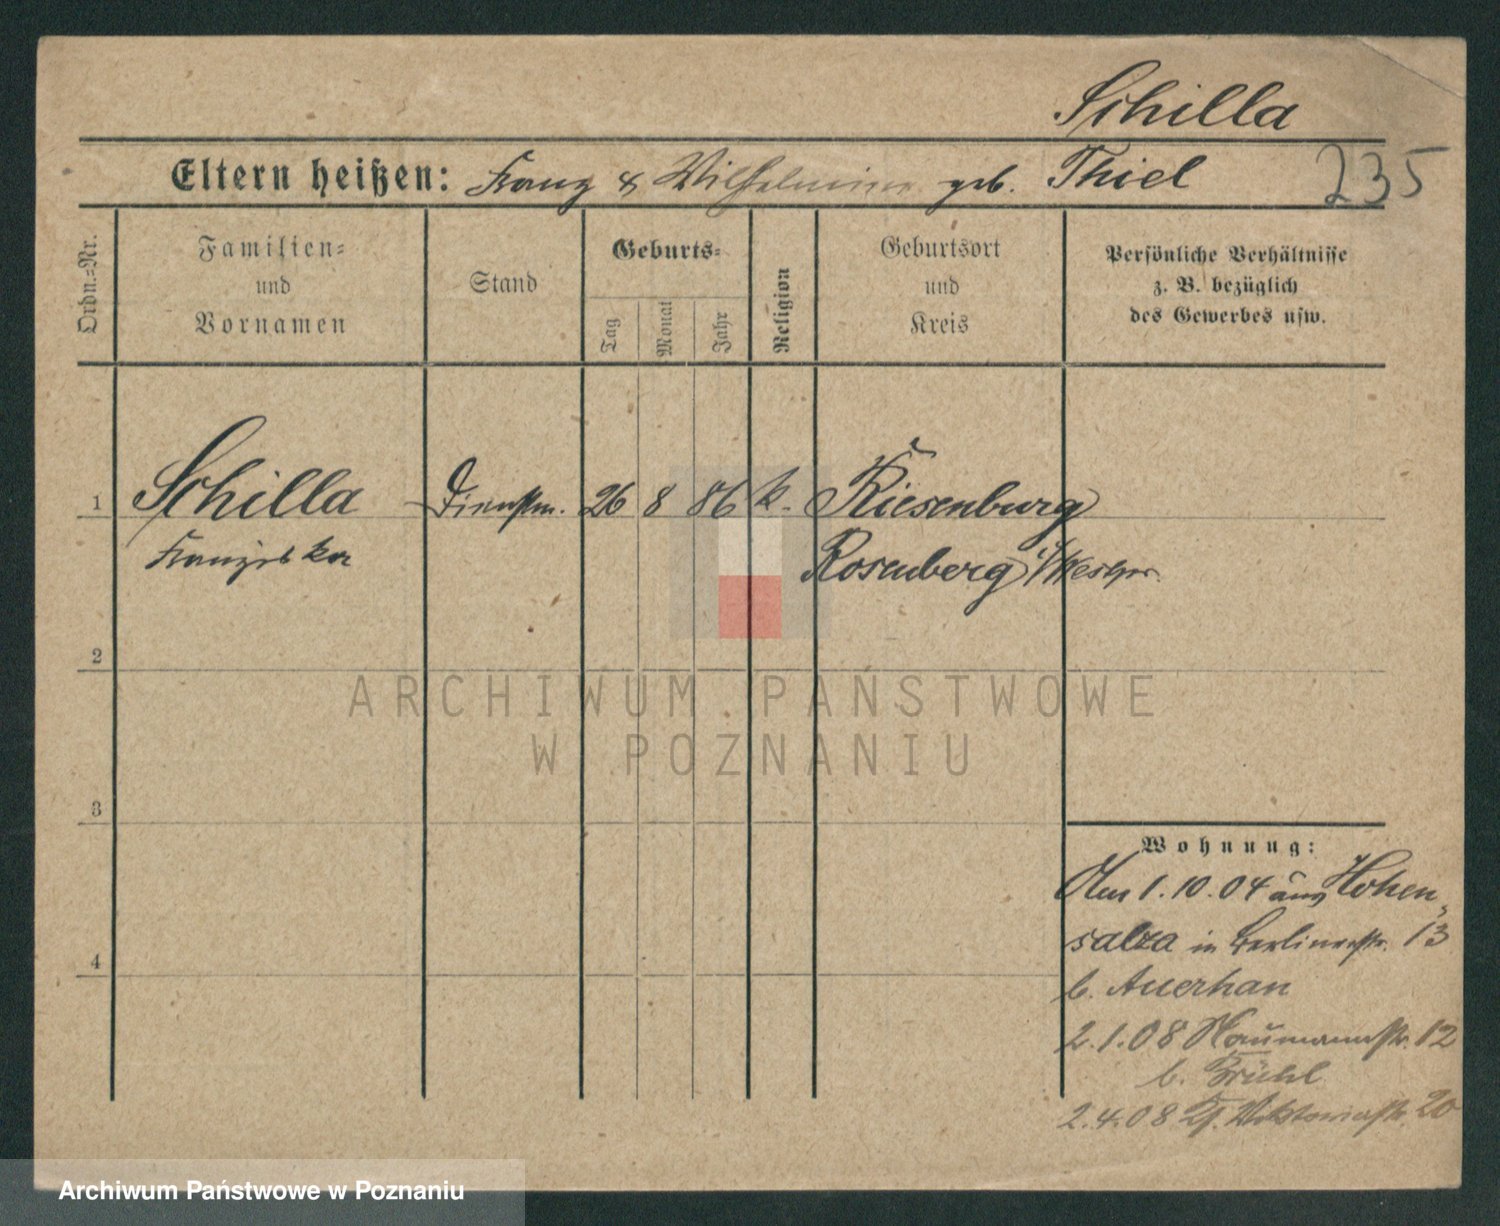 Schilla
Eltern heißen: Franz & Wilhelmine geb. Thiel
235
Ordn.=Nr.
Familien=
und
Vornamen
Stand
Geburts=
Tag
Monat
Jahr
Religion
Geburtsort
und
Kreis
Persönliche Verhältnisse
z. B. bezüglich
des Gewerbes usw.
1 Schilla Dienstm. 26 8 86 k. Riesenburg
Franziska Rosenberg i/Westpr.
2
ARCHIWUM PAŃSTWOWE
W POZNANIU
3
4
Wohnung:
Am 1.10.04 aus Hohen-
salza in Berlinerstr. 13
b. Auerhan
2.1.08 Naumannstr. 12
b. Brühl
2.4.08 Viktoriastr. 20
Archiwum Państwowe w Poznaniu